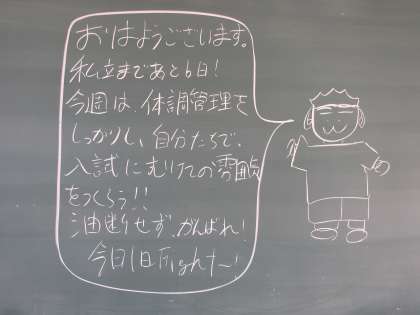 おはようございます。
私立まであと6日!
今週は、体調管理を
しっかりし、自分たちで、
入試にむけての雰囲気
をつくろう!!
油断せず、がんばれ!
今日1日Fight〜!